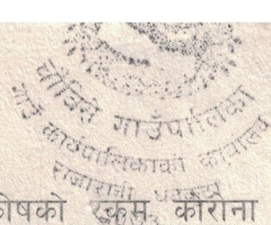 चौबिसे गाउँपालिका
गाउँ कार्यपालिकाको कार्यालय
राजारानी धनकुटा
कोषको रकम कोरोना